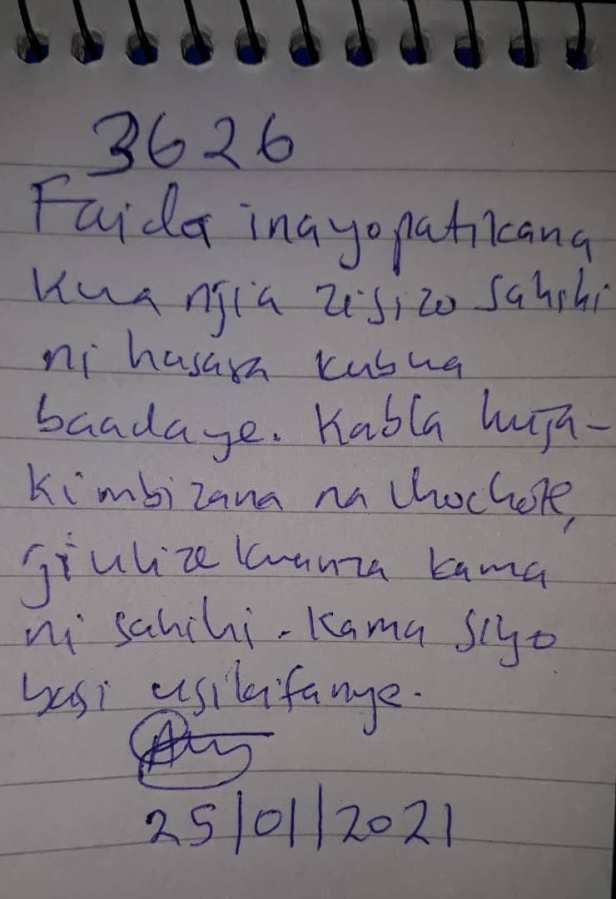 3626
Faida inayopatikana
kwa njia zisizo sahihi
ni hasara kubwa
baadaye. Kabla huja-
kimbizana na chochote,
jiulize kwanza kama
ni sahihi. Kama siyo
basi usikifanye.
25/01/2021